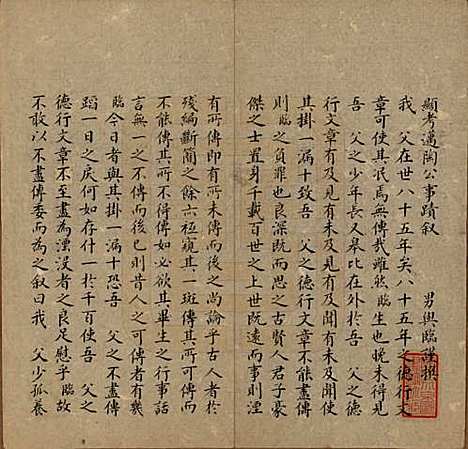 顯考邁陶公事蹟叙
男與臨謹撰
我　父在世八十五年矣八十五年之德行文
章可使其泯焉無傳哉雖然臨生也晚未得見
吾　父之少年長又舉比在外於吾　父之德
行文章有及見有未及見有及聞有未及聞使
其掛一漏十致吾　父之德行文章不能盡傳
則臨之負罪也良深既而思之古賢人君子豪
傑之士置身千載百世之上世既遠而事則湮
有所傳即有所未傳而後之尚論乎古人者於
殘編斷簡之餘六極窺其一班傳其所可傳而
不能傳其所不得傳如必欲其畢生之行事話
言無一之不傳而後已則昔人之可傳者有幾
臨今日者與其掛一漏十恐吾　父之不盡傳
蹈一日之戾何如存什一於千百使吾　父之
德行文章不至盡為湮沒者之良足慰乎臨故
不敢以不盡傳委而為之叙曰我　父少孤養